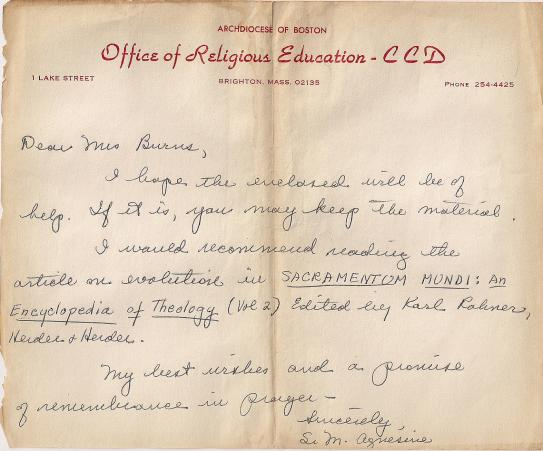 ARCHDIOCESE OF BOSTON
Office of Religious Education - CCD
1 LAKE STREET
BRIGHTON, MASS. 02135
PHONE 254-4425
Dear Mrs Burns,
I hope the enclosed will be of
help. If it is, you may keep the material.
I would recommend reading the
article on evolution in SACRAMENTUM MUNDI: An
Encyclopedia of Theology (Vol 2) Edited by Karl Rahner,
Herder & Herder.
My best wishes and a promise
of remembrance in prayer —
Sincerely,
Sr. M. Agnesine